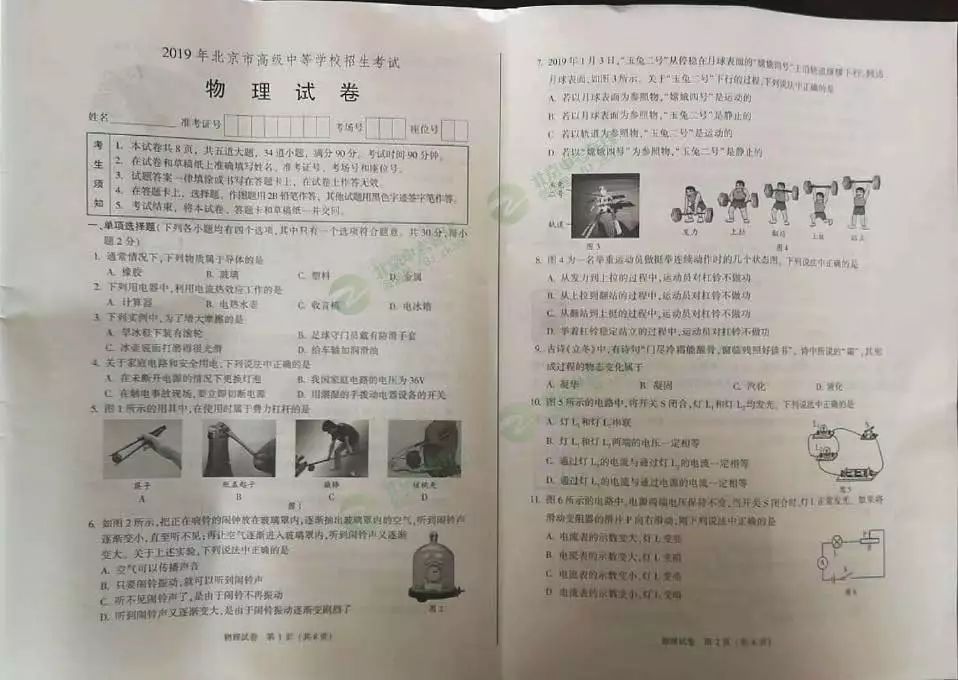 2019 年北京市高级中等学校招生考试
物 理 试 卷
姓名 准考证号 考场号 座位号
考生须知
1. 本试卷共 8 页，共五道大题，34 道小题，满分 90 分。考试时间 90 分钟。
2. 在试卷和草稿纸上准确填写姓名、准考证号、考场号和座位号。
3. 试题答案一律填涂或书写在答题卡上，在试卷上作答无效。
4. 在答题卡上，选择题、作图题用 2B 铅笔作答，其他试题用黑色字迹签字笔作答。
5. 考试结束，将本试卷、答题卡和草稿纸一并交回。
一、单项选择题（下列各小题均有四个选项，其中只有一个选项符合题意。共 30 分，每小
题 2 分）
1. 通常情况下，下列物质属于导体的是
A. 橡胶 B. 玻璃 C. 塑料 D. 金属
2. 下列用电器中，利用电流热效应工作的是
A. 计算器 B. 电热水壶 C. 收音机 D. 电冰箱
3. 下列实例中，为了增大摩擦的是
A. 旱冰鞋下装有滚轮 B. 足球守门员戴有防滑手套
C. 冰壶底面打磨得很光滑 D. 给车轴加润滑油
4. 关于家庭电路和安全用电，下列说法中正确的是
A. 在未断开电源的情况下更换灯泡 B. 我国家庭电路的电压为 36V
C. 在触电事故现场，要立即切断电源 D. 用潮湿的手拨动电器设备的开关
5. 图 1 所示的用具中，在使用时属于费力杠杆的是
筷子 瓶盖起子 撬棒 核桃夹
A B C D
图 1
6. 如图 2 所示，把正在响铃的闹钟放在玻璃罩内，逐渐抽出玻璃罩内的空气，听到闹铃声
逐渐变小，直至听不见；再让空气逐渐进入玻璃罩内，听到闹铃声又逐渐
变大。关于上述实验，下列说法中正确的是
A. 空气可以传播声音
B. 只要闹铃振动，就可以听到闹铃声
C. 听不见闹铃声了，是由于闹铃不再振动
D. 听到闹铃声又逐渐变大，是由于闹铃振动逐渐变剧烈了
图 2
物理试卷 第 1 页（共 8 页）
7. 2019 年 1 月 3 日，“玉兔二号”从停稳在月球表面的“嫦娥四号”上沿轨道缓缓下行，到达
月球表面，如图 3 所示。关于“玉兔二号”下行的过程，下列说法中正确的是
A. 若以月球表面为参照物，“嫦娥四号”是运动的
B. 若以月球表面为参照物，“玉兔二号”是静止的
C. 若以轨道为参照物，“玉兔二号”是运动的
D. 若以“嫦娥四号”为参照物，“玉兔二号”是静止的
玉兔
二号
轨道
图 3
发力 上拉 翻站 上挺 站立
图 4
8. 图 4 为一名举重运动员做挺举连续动作时的几个状态图。下列说法中正确的是
A. 从发力到上拉的过程中，运动员对杠铃不做功
B. 从上拉到翻站的过程中，运动员对杠铃不做功
C. 从翻站到上挺的过程中，运动员对杠铃不做功
D. 举着杠铃稳定站立的过程中，运动员对杠铃不做功
9. 古诗《立冬》中，有诗句“门尽冷霜能醒骨，窗临残照好读书”。诗中所说的“霜”，其形
成过程的物态变化属于
A. 凝华 B. 凝固 C. 汽化 D. 液化
10. 图 5 所示的电路中，将开关 S 闭合，灯 L₁和灯 L₂均发光。下列说法中正确的是
A. 灯 L₁和灯 L₂串联
B. 灯 L₁和灯 L₂两端的电压一定相等
C. 通过灯 L₁的电流与通过灯 L₂的电流一定相等
D. 通过灯 L₁的电流与通过电源的电流一定相等
图 5
11. 图 6 所示的电路中，电源两端电压保持不变，当开关 S 闭合时，灯 L 正常发光。如果将
滑动变阻器的滑片 P 向右滑动，则下列说法中正确的是
A. 电流表的示数变大，灯 L 变亮
B. 电流表的示数变大，灯 L 变暗
C. 电流表的示数变小，灯 L 变亮
D. 电流表的示数变小，灯 L 变暗
图 6
物理试卷 第 2 页（共 8 页）